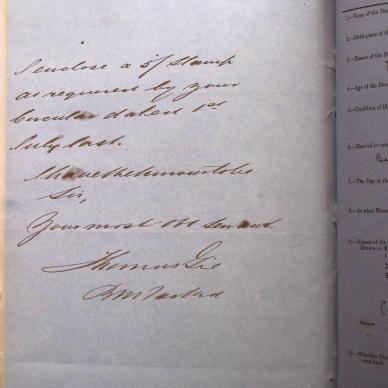 I enclose a 5/ Stamp
as required by your
Circular dated 1st
July last.
I have the honour to be
Sir,
Your most Ob Servant
Thomas
1.—Name of the
2.—Birth-place of the
3.—Names of the
4.—Age of the
5.—Condition of
6.—Married or
7.—The Day of
8.—At what
9.—Names of the
10.—Whether